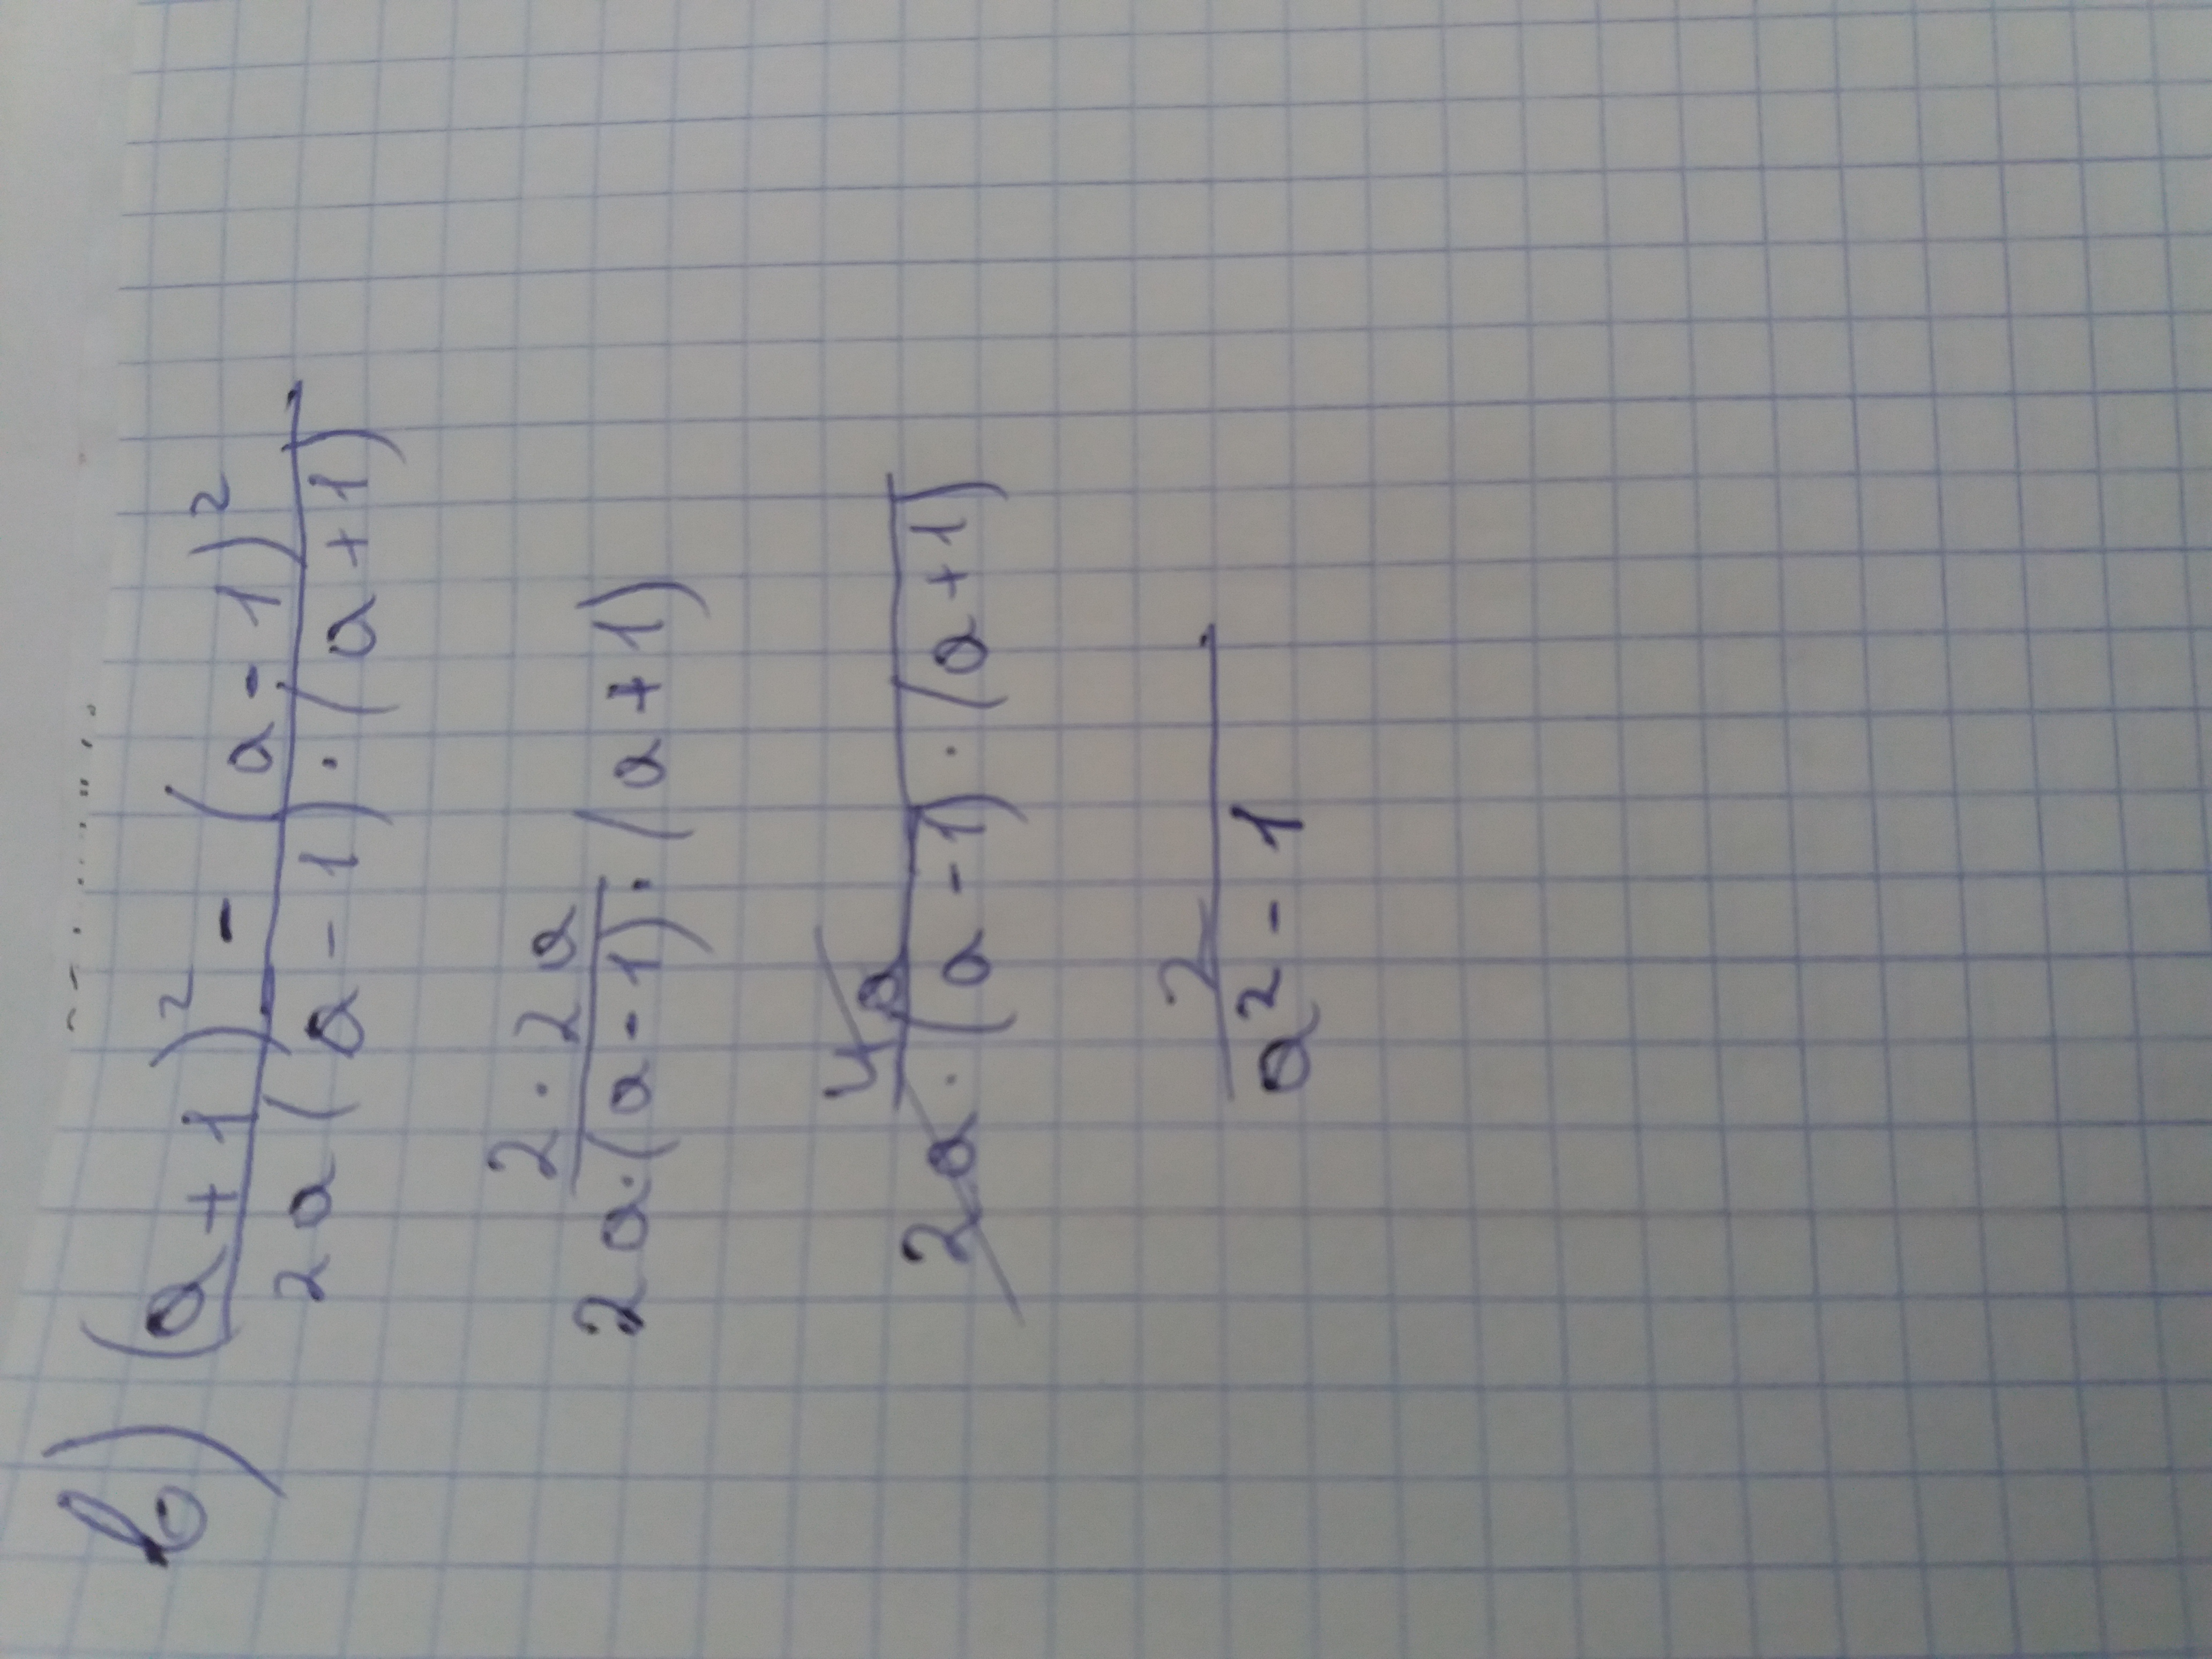 в) (a+1)² - (a-1)²
2a(a-1)·(a+1)
2·2a
2a·(a-1)·(a+1)
4a
2a·(a-1)·(a+1)
2
a²-1